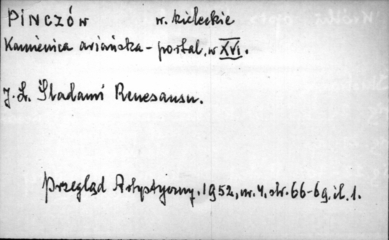 PINCZÓW w. kieleckie
Kamienica ariańska - portal, w XVI.
J. L. Śladami Renesansu.
Przegląd Artystyczny, 1952, nr. 4, str. 66-69, il. 1.